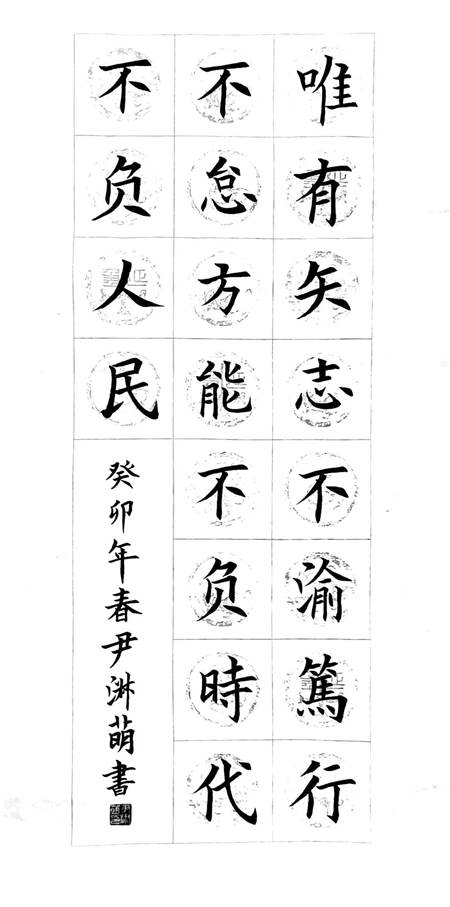 唯有矢志不渝篤行
不怠方能不负時代
不负人民
癸卯年春尹淋萌書